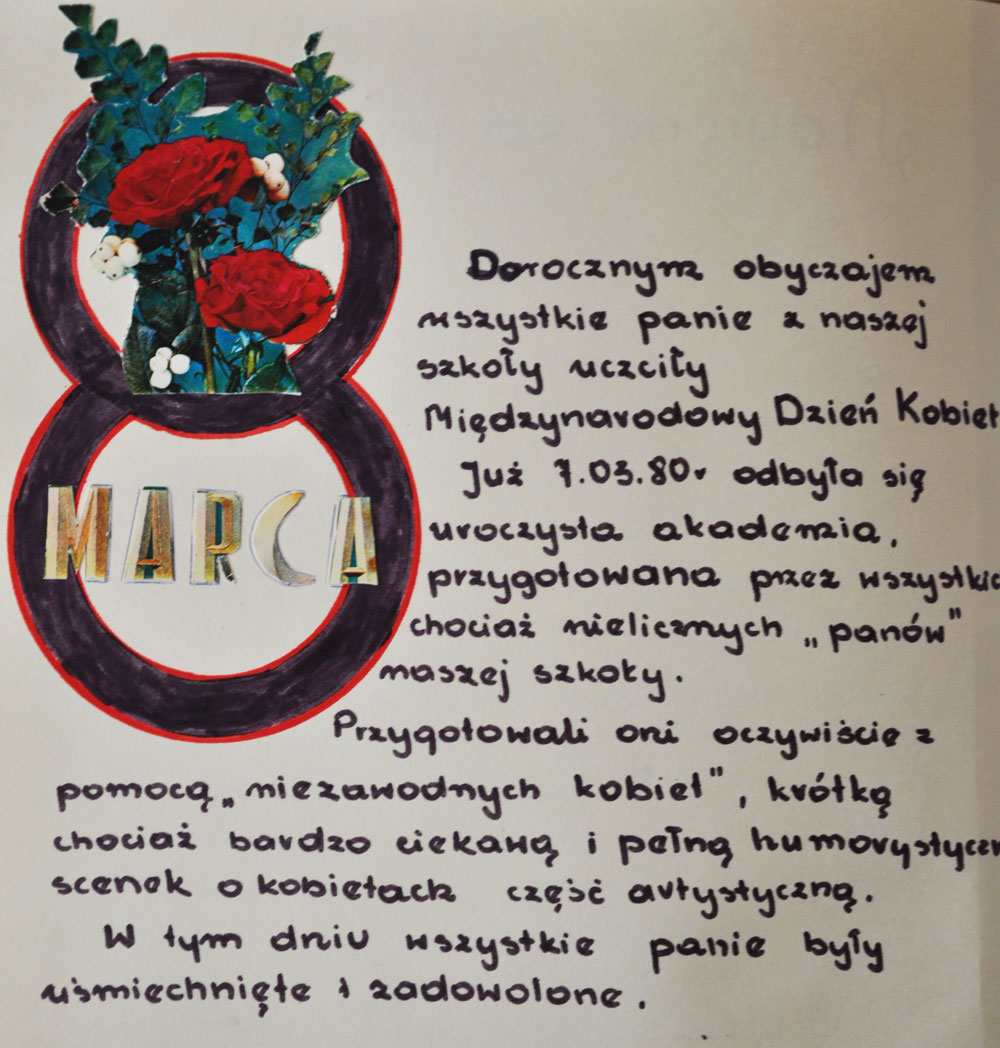 8
MARCA
Dorocznym obyczajem
wszystkie panie z naszej
szkoły uczciły
Międzynarodowy Dzień Kobiet
Już 7.03.80r odbyła się
uroczysta akademia,
przygotowana przez wszystkic
chociaż nielicznych „panów"
naszej szkoły.
Przygotowali oni oczywiście z
pomocą „niezawodnych kobiet", krótką
chociaż bardzo ciekawą i pełną humorystyczn
scenek o kobietach część artystyczną.
W tym dniu wszystkie panie były
uśmiechnięte i zadowolone.